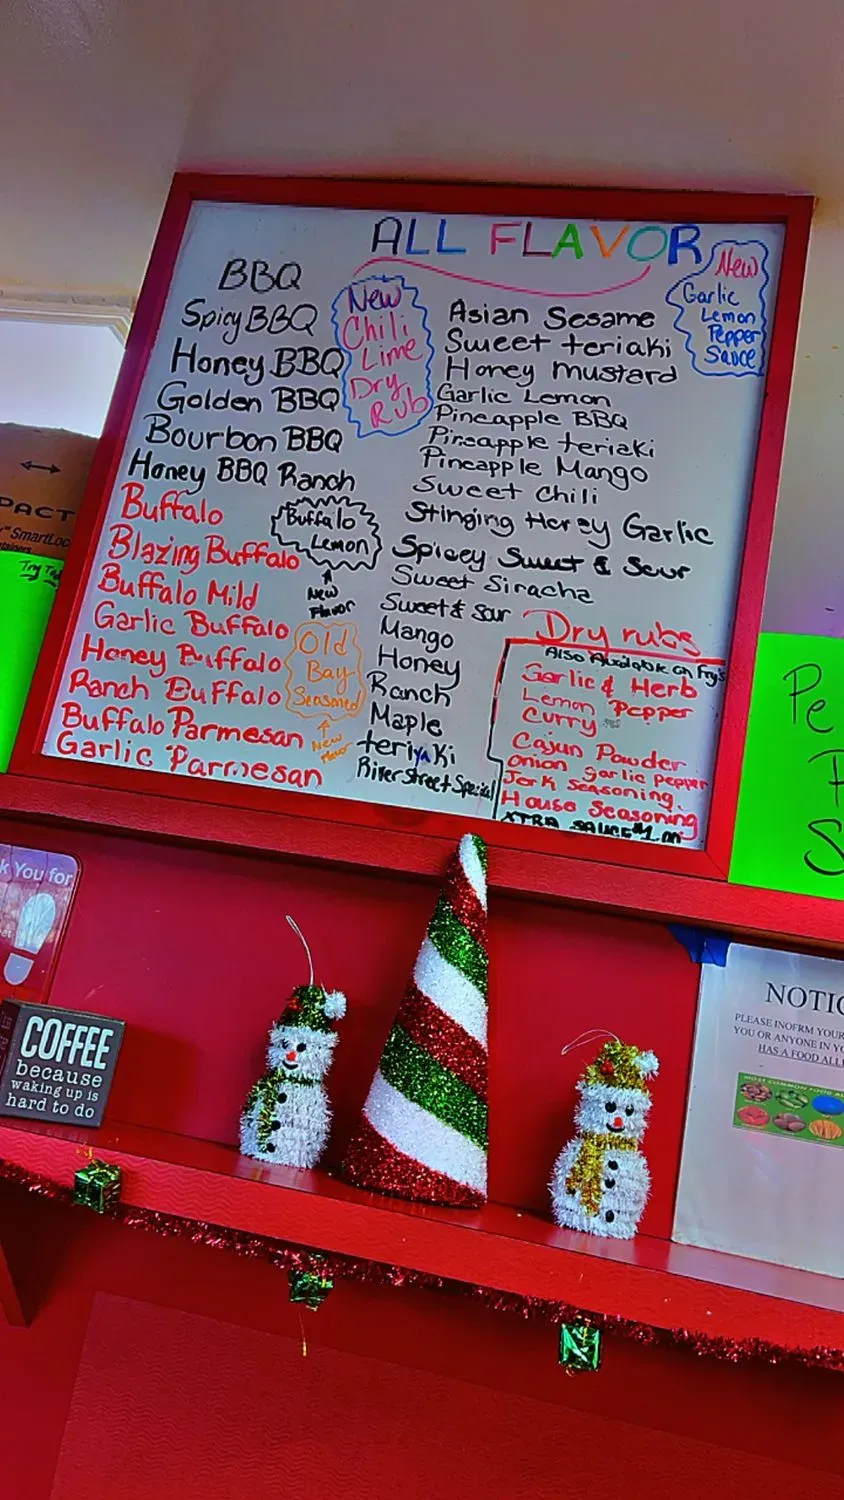 ALL FLAVOR
BBQ
Spicy BBQ
Honey BBQ
Golden BBQ
Bourbon BBQ
Honey BBQ Ranch
Buffalo
Blazing Buffalo
Buffalo Mild
Garlic Buffalo
Honey Buffalo
Ranch Buffalo
Buffalo Parmesan
Garlic Parmesan
New
Chili
Lime
Dry
Rub
Buffalo
Lemon
New
Flavor
Old
Bay
Seasoned
New
Flavor
Asian Sesame
Sweet teriaki
Honey mustard
Garlic Lemon
Pineapple BBQ
Pineapple teriaki
Pineapple Mango
Sweet Chili
Stinging Honey Garlic
Spicey Sweet & Sour
Sweet Siracha
Sweet & Sour
Mango
Honey
Ranch
Maple
teriyaki
River Street Special
New
Garlic
Lemon
Pepper
Sauce
Dry rubs
Also Available on Fry's
Garlic & Herb
Lemon Pepper
Curry
Cajun Powder
onion garlic pepper
Jerk seasoning
House Seasoning
XTRA SAUCE $1.00
PACT
SmartLoc
Try
Pe
k You for
COFFEE
because
waking up is
hard to do
NOTIC
PLEASE INOFRM YOUR
YOU OR ANYONE IN YO
HAS A FOOD ALL
MOST COMMON FOOD A